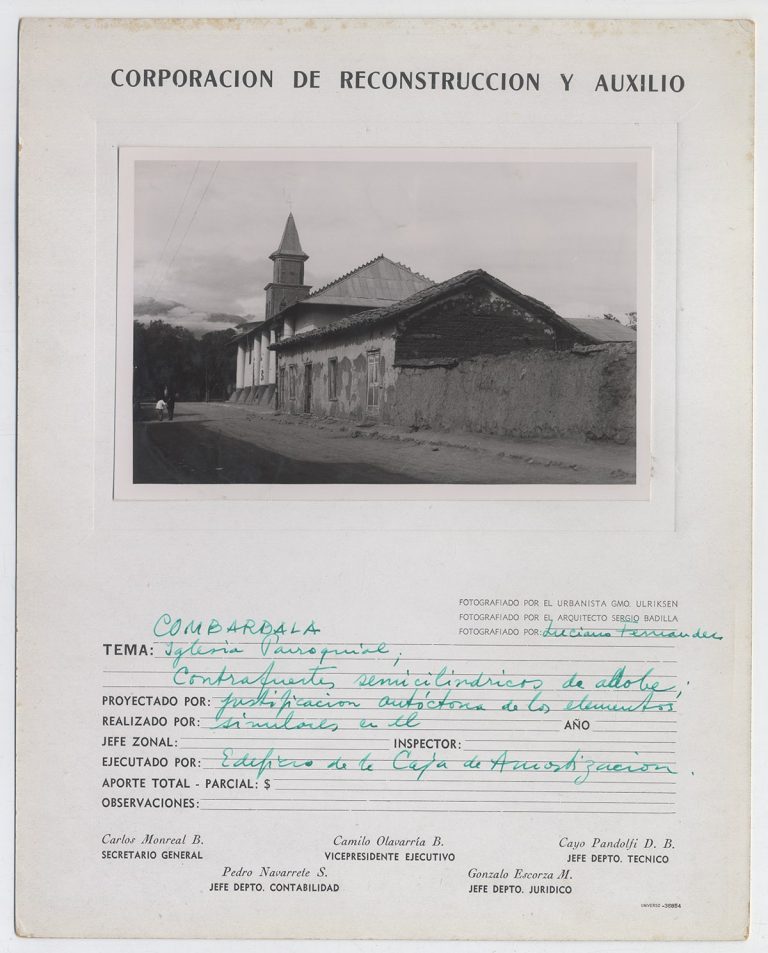 CORPORACION DE RECONSTRUCCION Y AUXILIO
FOTOGRAFIADO POR EL URBANISTA GMO. ULRIKSEN
FOTOGRAFIADO POR EL ARQUITECTO SERGIO BADILLA
FOTOGRAFIADO POR: Luciano Fernandez
COMBARBALA
TEMA: Iglesia Parroquial;
Contrafuertes semicilíndricos de adobe;
PROYECTADO POR: justificacion autóctona de los elementos
REALIZADO POR: similares en el AÑO
JEFE ZONAL: INSPECTOR:
EJECUTADO POR: Edificio de la Caja de Amortizacion.
APORTE TOTAL - PARCIAL: $
OBSERVACIONES:
Carlos Monreal B. Camilo Olavarría B. Cayo Pandolfi D. B.
SECRETARIO GENERAL VICEPRESIDENTE EJECUTIVO JEFE DEPTO. TECNICO
Pedro Navarrete S. Gonzalo Escorza M.
JEFE DEPTO. CONTABILIDAD JEFE DEPTO. JURIDICO
UNIVERSO -38854